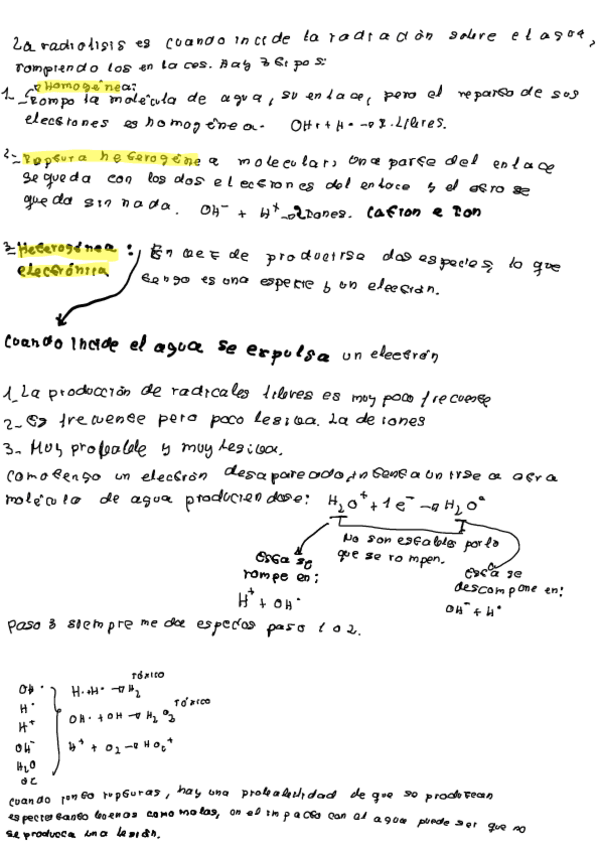 La radiolisis es cuando incide la radiación sobre el agua,
rompiendo los enlaces. Hay 3 tipos:
1- Homogénea:
-Rompo la molécula de agua, su enlace, pero el reparto de sus
electrones es homogénea. OH· + H· → R. Libres.
2- Ruptura heterogénea molecular, una parte del enlace
se queda con los dos electrones del enlace y el otro se
queda sin nada. OH⁻ + H⁺ → 2 Iones. Cation e Ion
3- Heterogénea : En vez de producirse dos especies, lo que
electrónica tengo es una especie y un electrón.
Cuando incide el agua se expulsa un electrón
1_ La producción de radicales libres es muy poco frecuente
2- Es frecuente pero poco lesiva. La de iones
3- Muy probable y muy lesiva.
Como tengo un electrón desapareado, intenta unirse a otra
molécula de agua produciendose: H₂O⁺ + 1e⁻ → H₂O°
No son estables por lo
que se rompen.
Esta se
rompe en:
H⁺ + OH·
Esta se
descompone en:
OH⁻ + H·
Paso 3 siempre me da especies paso 1 o 2.
OH·
H·
H⁺
OH⁻
H₂O
O2
H· + H· → H₂ TÓXICO
OH· + OH → H₂O₂ TÓXICO
H⁺ + O₂ → HO₂⁺
Cuando tengo rupturas, hay una probabilidad de que se produzcan
especies tanto buenas como malas, en el impacto con el agua puede ser que no
se produzca una lesión.